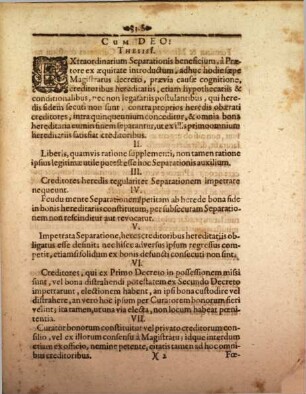 CUM DEO:
THESIS I.
EXtraordinarium Separationis beneficium, à Præ-
tore ex æquitate introductum, adhuc hodie sæpe
Magistratus decreto, prævia causæ cognitione,
creditoribus hereditariis, etiam hypothecariis &
conditionalibus, nec non legatariis postulantibus, qui here-
dis fidem secuti non sunt, contra proprios heredis obærati
creditores, intra quinquennium conceditur, & omnia bona
hereditaria eum in finem separantur, ut ex iis primo omnium
hereditariis satisfiat creditoribus.
II.
Liberis, quamvis ratione supplementi, non tamen ratione
ipsius legitimæ utile pu est esse hoc Separationis auxilium.
III.
Creditores heredis regulariter Separationem impetrare
nequeunt. IV.
Feudum ente Separationem pericum ab herede bona fide
in bonis hereditariis constitutum, per subsecutam Separatio-
nem non rescinditur aut revocatur.
V.
Impetrata Separatione, heres creditoribus hereditariis ob-
ligatus esse desinit: nec hisce adversus ipsum regressus com-
petit, etiamsi solidum ex bonis defuncti consecuti non sint.
VI.
Creditores, qui ex Primo Decreto in possessionem missi
sunt, vel bona distrahendi potestatem ex Secundo Decreto
impetrarunt, electionem habent, an ipsi bona custodire vel
distrahere, an vero hoc ipsum per Curatorem bonorum fieri
velint; ita tamen, ut una via electa, non locum habeat pœni-
tentia. VII.
Curator bonorum constituitur vel privato creditorum con-
silio, vel ex illorum consensu à Magistratu; idque interdum
etiam ex officio, nemine petente, citatis tamen ad hoc omni-
bus creditoribus. X 2 Fœ-